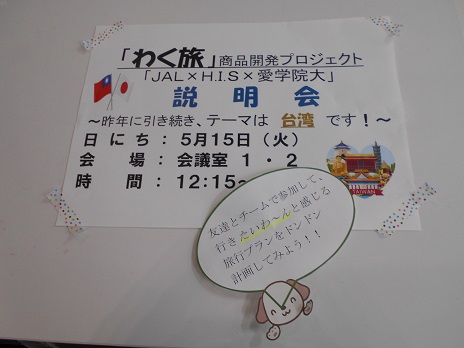 「わく旅」商品開発プロジェクト
「JAL×H.I.S×愛学院大」
説明会
～昨年に引き続き、テーマは 台湾 です！～
日にち：5月15日（火）
会　場：会議室１・２
時　間：12:15～
TAIWAN
友達とチームで参加して、
行きたいわ～んと感じる
旅行プランをドンドン
計画してみよう！！